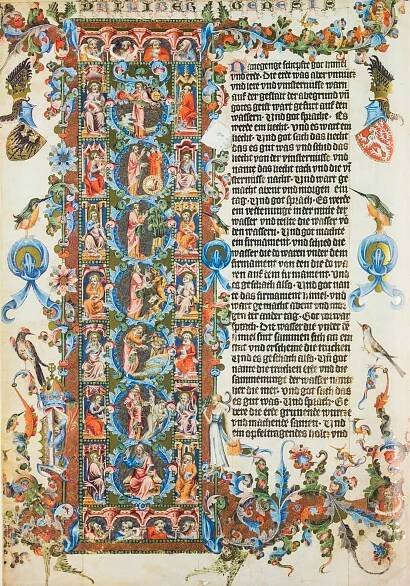 PRI LIBER GENESIS
schepfte got himel
vnd erde. Die erde was aber vnnutz
vnd lere vnd vinsternisse warn
auf der gestalt der abegrund vnd
gotes geist wart gefurt auf den
wassern. Vnd got sprach. Es
werde ein liecht. vnd es wart ein
liecht. Vnd got sach das liecht
das es gut was vnd schid das
liecht von der vinsternisse. vnd
nante das liecht tach vnd die vi
sternisse nacht. Vnd wart ge
macht abent vnd morgen ein
tag. Vnd got sprach. Es werde
ein vestenunge in der mitte der
wasser. vnd teilte die wasser vo
den wassern. Vnd got machte
ein firmament. vnd schied die
wasser die do waren vnder dem
firmament von den die da wa
ren auf dem firmament. vnd
es geschach also. Vnd got nan
te das firmament himel. vnd
wart gemacht abent vnd mor
gen der ander tag. Got vorwar
sprach. Die wasser die vnder de
himel sint sammen sich an ein
stat vnd erscheine die trucken
Vnd es geschach also. Vnd got
nante die trucken erde vnd die
sammenunge der wasser nante
er die mer. vnd got sach das
es gut was. Vnd sprach. Ge
bere die erde grunende wurtze
vnd machende samen. Vnd
ein opfeltragendes holtz vnd